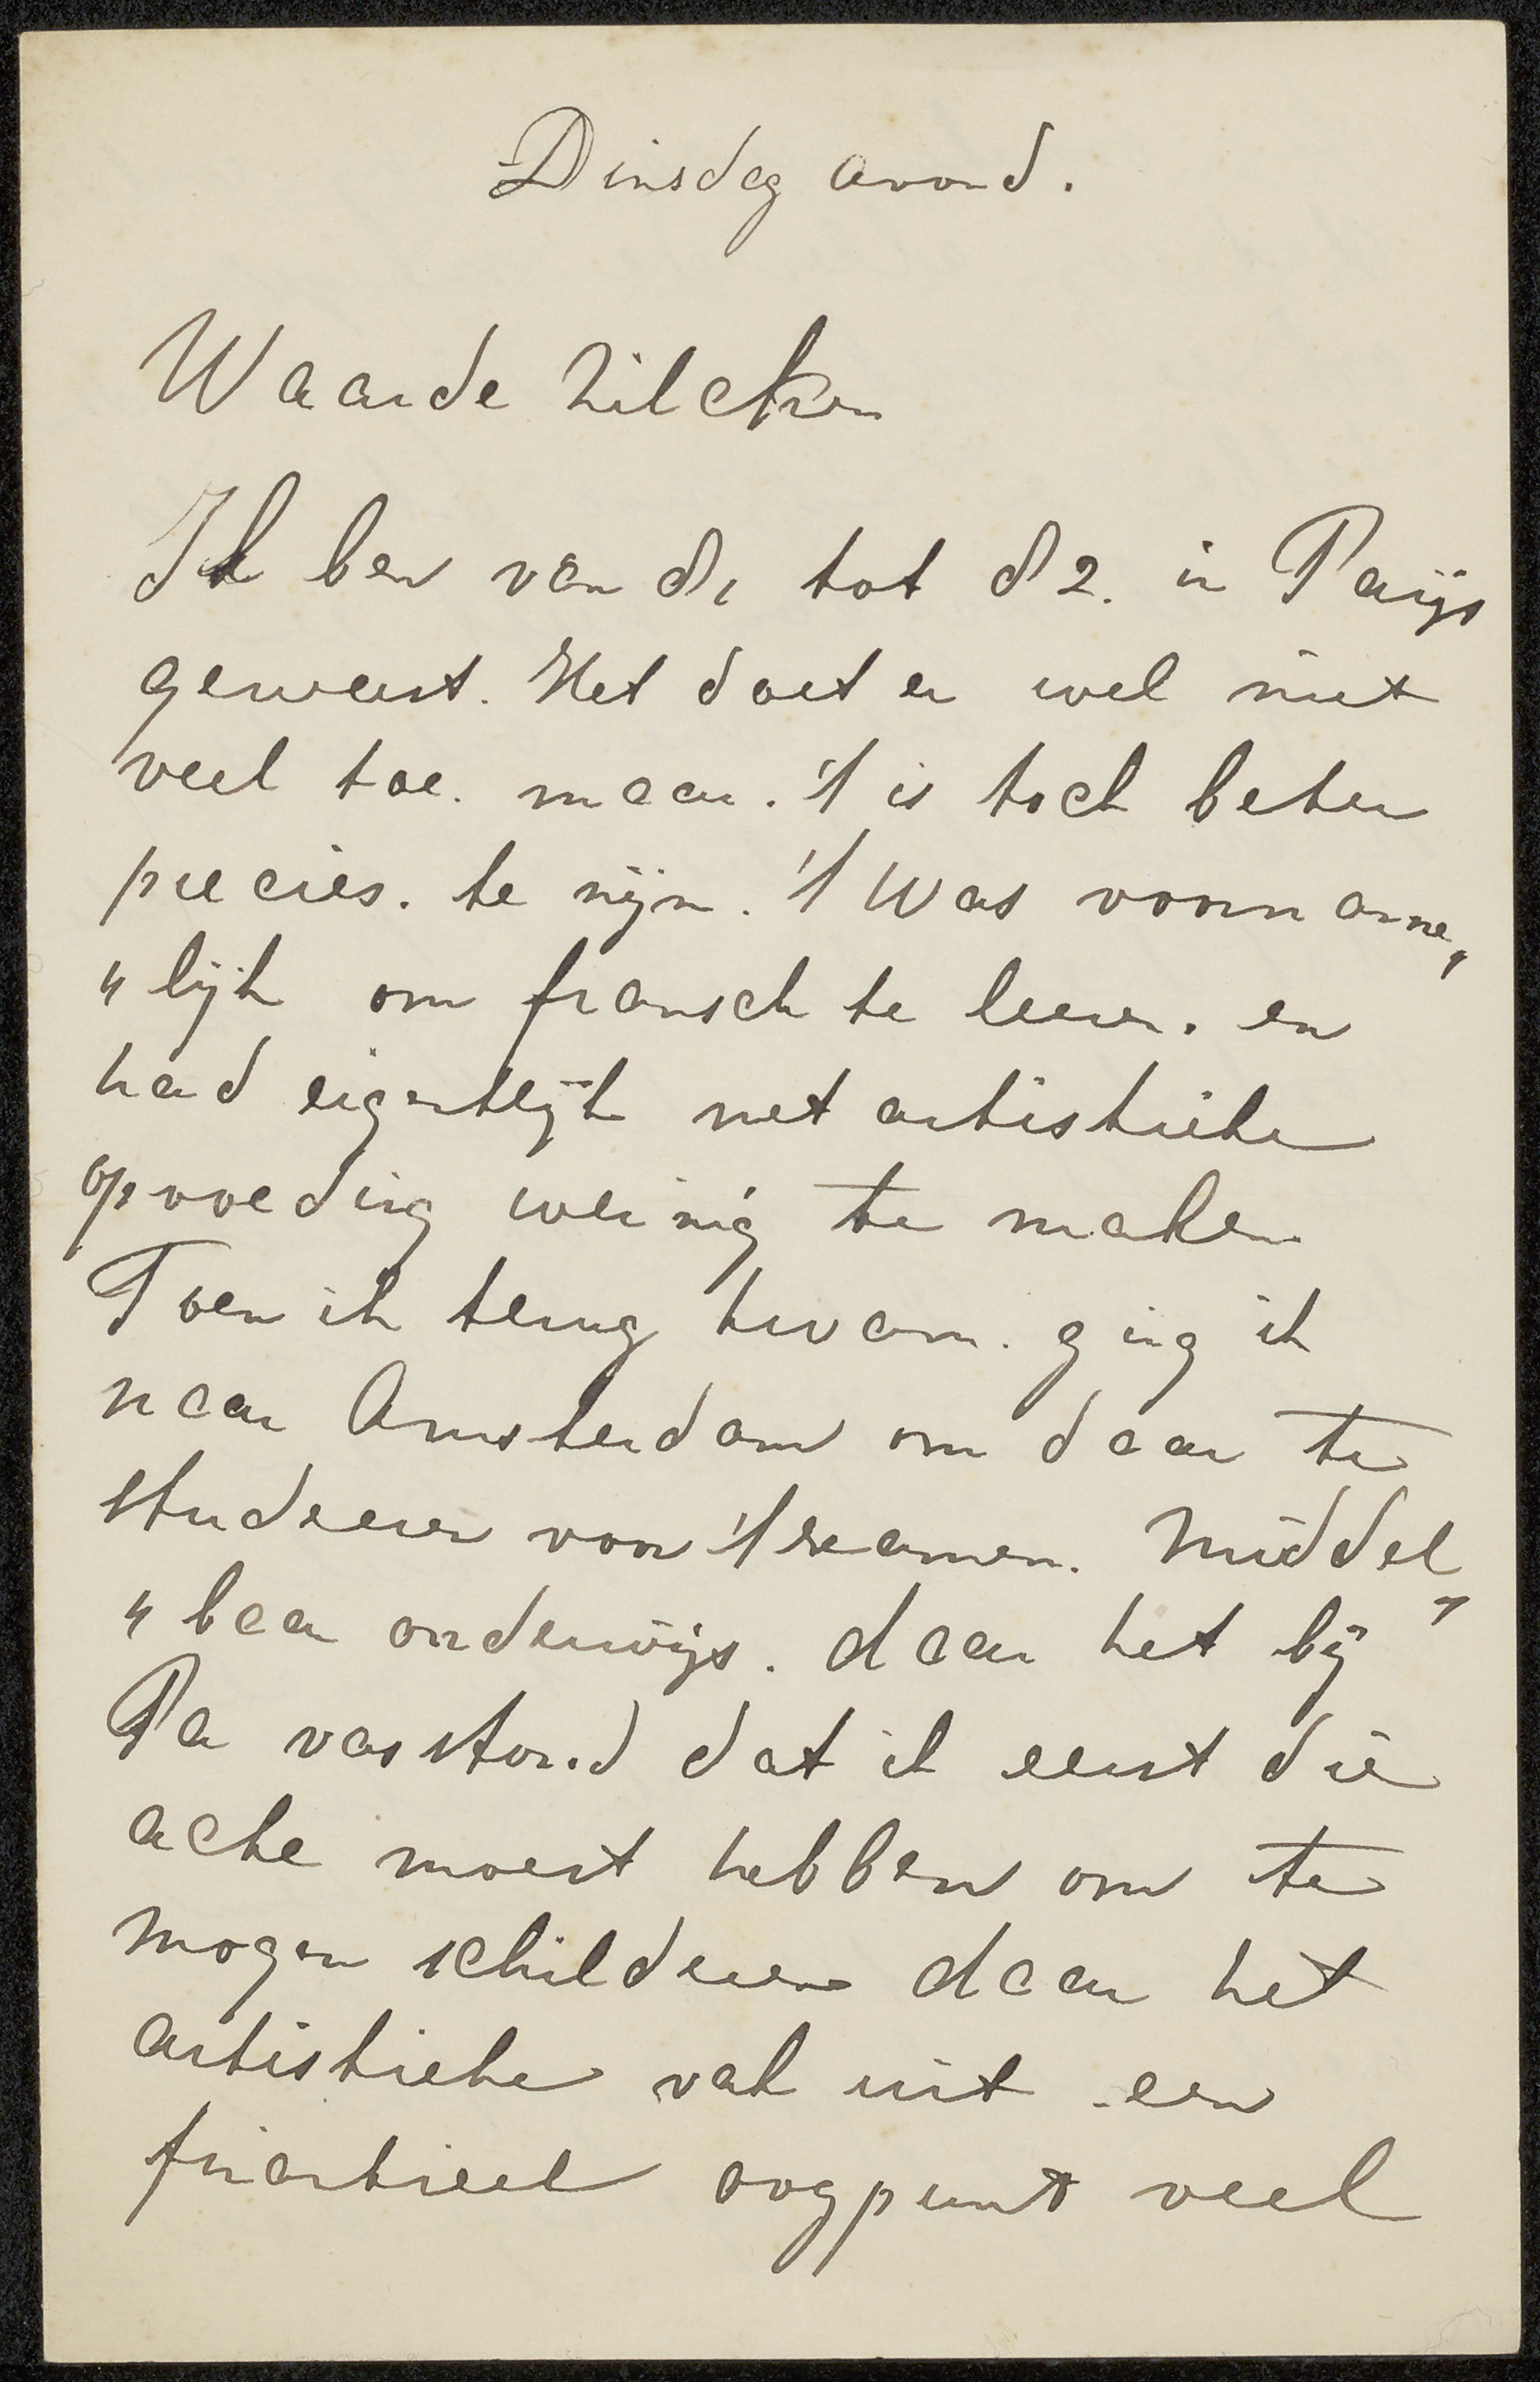 Dinsdag avond.
Waarde Zilcken
Ik ben van 81 tot 82. in Parijs
geweest. Het doet er wel niet
veel toe. maar. 't is toch beter
precies. te zijn. 't Was voorname„
„lijk om fransch te leeren. en
had eigentlijk met artistieke
opvoeding weinig te maken
Toen ik terug kwam. ging ik
naar Amsterdam om daar te
studeeren voor 't examen. Middel„
„baar onderwijs. daar het bij
Pa vasstond dat ik eerst die
acte moest hebben om te
mogen schilderen daar het
artistieke vak uit een
finantieel oogpunt veel